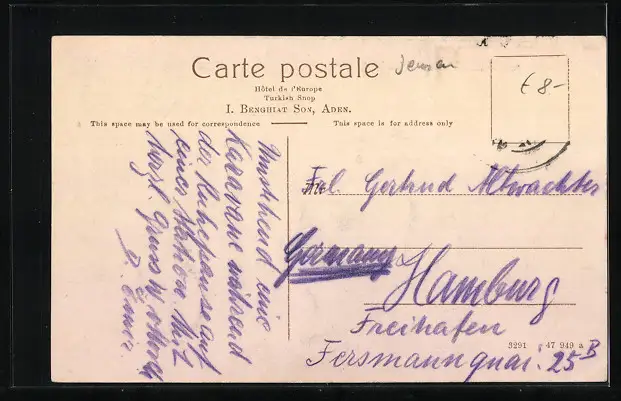 Carte postale Jemen
€ 8-
Hôtel de l'Europe
Turkish Shop
I. Benghiat Son, Aden.
This space may be used for correspondence
This space is for address only
Umstehend eine
Karavane während
der Ruhepause auf
einer Station. Mit
herzl. Gruss
Frl. Gertrud Altwachter
Germany
Hamburg
Freihafen
3291 47 949 a
Fersmannquai. 25 B